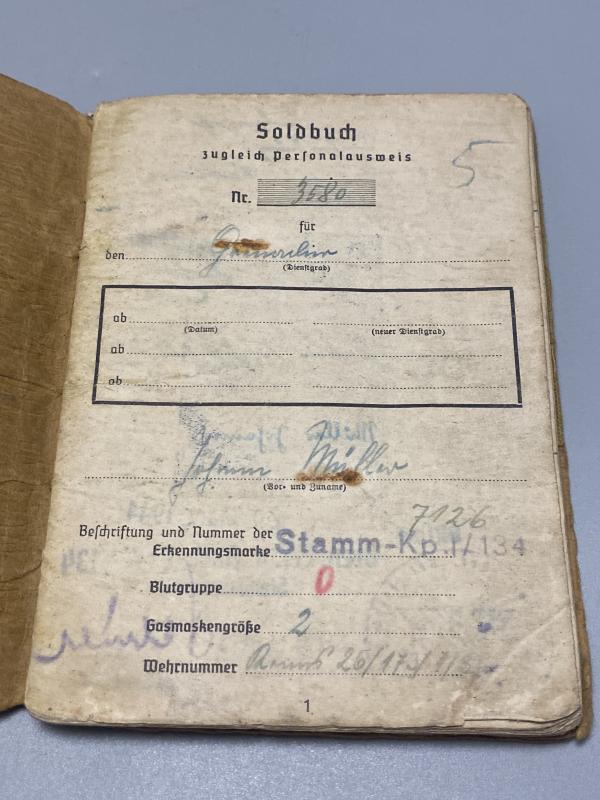 Soldbuch
zugleich Personalausweis
5
Nr. 3580
für
den Grenadier
(Dienstgrad)
ab
(Datum) (neuer Dienstgrad)
ab
ab
Johann Müller
(Vor- und Zuname)
7126
Beschriftung und Nummer der
Erkennungsmarke Stamm-Kp. I/134
Blutgruppe 0
Gasmaskengröße 2
Wehrnummer
1